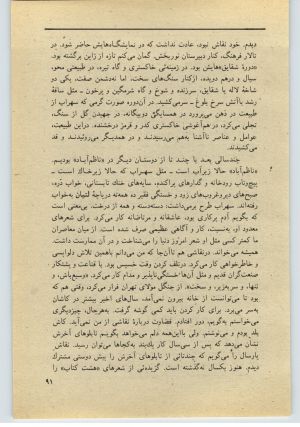 دیدم. خود نقاش نبود، عادت نداشت که در نمایشگاه‌هایش حاضر شود. در
تالار فرهنگ، کنار دبیرستان نوربخش. گمان می‌کنم تازه از ژاپن برگشته بود.
دورهٔ شقایق‌هایش بود. در زمینه‌ئی خاکستری و گاه تیره، در طبیعتی محو،
سیال و درهم دویده، ازکنار سنگ‌های سخت، اما نه‌دشمن صفت، یکی دو
شاخهٔ لاله یا شقایق، سرزنده و شوخ و گاه شرمگین و پرخون ـ مثل ساقهٔ
رشد یافتن سرخ بلوغ ـ سرمی‌کشید. در آن‌دوره صورت گرمی که سهراب از
طبیعت در ذهن می‌پرورد در همسایگی دوبیگانه، در جهیدن گل از سنگ،
تجلی می‌کرد، در هم‌آغوشی خاکستری کدر و قرمز درخشنده. در این طبیعت،
عوامل و عناصر ناآشنا به‌هم می‌رسیدند و در همدیگر می‌روئیدند و قد
می‌کشیدند.
چندسالی بعد با چند تا از دوستان دیگر در «ناظم‌آباد» بودیم.
«ناظم‌آباد» حالا زیرآب است ـ مثل سهراب که حالا زیرخاک است ـ با
پیچ‌وتاب رودخانه و گدارهای پراکنده، سایه‌های خنک تابستانی، خواب دَره،
صبح‌های دیر و غروب‌های زود و خستگی فقیر ده همه‌ته دریاچهٔ لتیان به‌خواب
رفته‌اند. سهراب طرح برمی‌داشت، دسته‌دسته و همه از درخت. بی‌معنی است
که بگویم آدم پرکاری بود، عاشقانه و مرتاضانه کار می‌کرد. برای شعرهای
معدود او، به‌نسبت، کار و آگاهی عظیمی صرف شده است. از میان معاصران
ما کمتر کسی مثل او شعر امروز دنیا را می‌شناخت و در آن ممارست داشت.
همیشه می‌خواند. در نقاشی هم تاآن‌جا که می‌دانم باهمین تلاش دلواپسی
و خاطرخواهی کار می‌کرد. درتلف کردن وقت خسیس بود. با قناعت و پشتکار
صنعتگران قدیم و مثل آن‌ها خستگی‌ناپذیر و مدام کار می‌کرد. «وسیع‌باش، و
تنها، و سربه‌زیر، و سخت». از جنگل مولای تهران فرار می‌کرد، وقتی هم که
بود تا می‌توانست از خانه بیرون نمی‌آمد، سال‌های اخیر بیشتر در کاشان
به‌سر می‌برد. برای کار کردن باید کمی گوشه گرفت. به‌هرحال، چیزدیگری
می‌خواستم به‌گویم، دور افتادم. قضاوت دربارهٔ نقاشی از من نمی‌آید. کاش
بلد بودم و می‌نوشتم. ولی باا‌ین‌همه می‌خواهم بگویم تابلوهای آخرش
نشان می‌دهد که پس از سی‌سال کار یک‌بند به‌کجاها می‌توان رسید. نقاش
پارسال را می‌گویم که چندتائی از تابلوهای آخرش را پیش دوستی مشترک
دیدم. هنوز یکسال نه‌گذشته است. گزیده‌ئی از شعرهای «هشت کتاب» را
۹۱